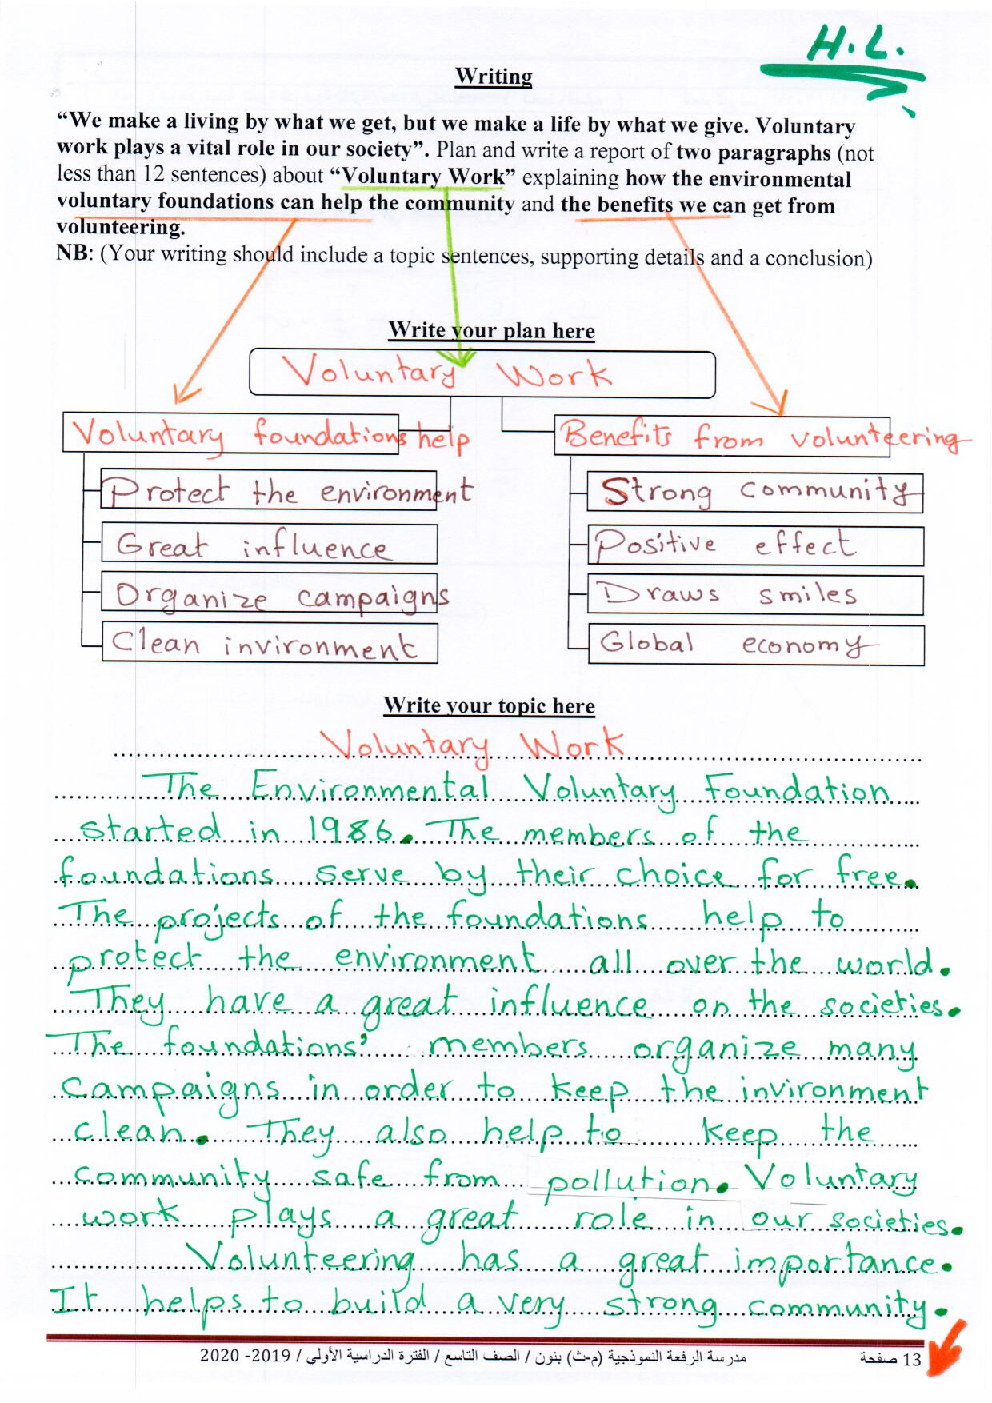 H.L.
Writing
“We make a living by what we get, but we make a life by what we give. Voluntary
work plays a vital role in our society”. Plan and write a report of two paragraphs (not
less than 12 sentences) about “Voluntary Work” explaining how the environmental
voluntary foundations can help the community and the benefits we can get from
volunteering.
NB: (Your writing should include a topic sentences, supporting details and a conclusion)
Write your plan here
Voluntary Work
Voluntary foundations help
Benefits from volunteering
Protect the environment
Strong community
Great influence
Positive effect
Organize campaigns
Draws smiles
Clean invironment
Global economy
Write your topic here
Voluntary Work
The Environmental Voluntary Foundation
started in 1986. The members of the
foundations serve by their choice for free.
The projects of the foundations help to
protect the environment all over the world.
They have a great influence on the societies.
The foundations' members organize many
campaigns in order to keep the invironment
clean. They also help to keep the
community safe from pollution. Voluntary
work plays a great role in our societies.
Volunteering has a great importance.
It helps to build a very strong community.
مدرسة الرفعة النموذجية (م-ث) بنون / الصف التاسع / الفترة الدراسية الأولى / 2019- 2020
13 صفحة